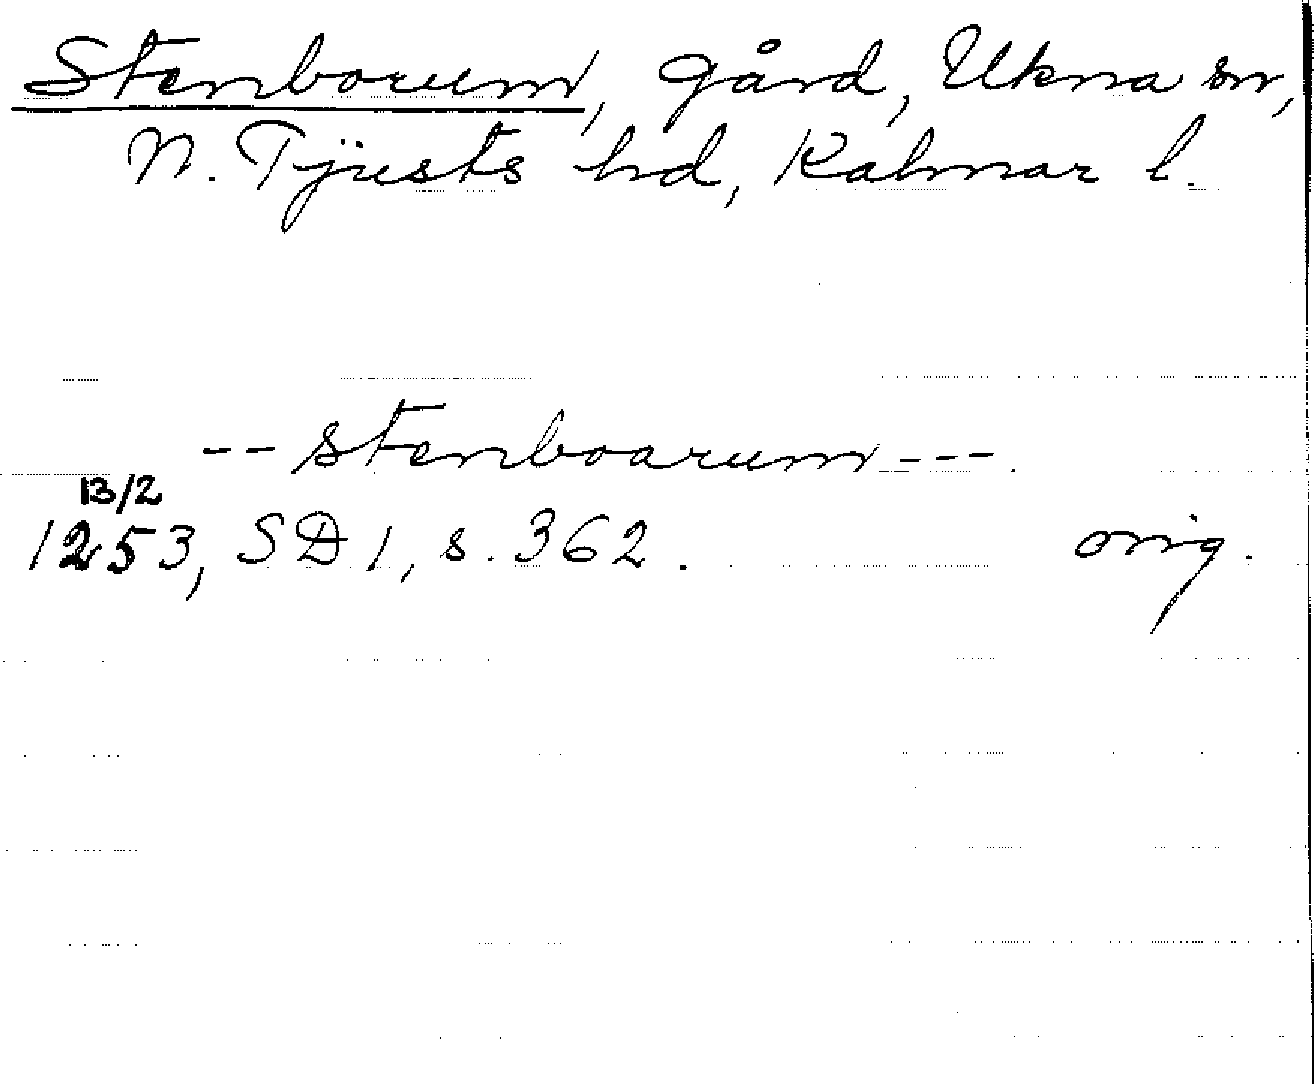 Stenborum, gård, Ukna sn,
N. Tjusts hd, Kalmar l.
-- stenboarum ---.
13/2
1253, SD 1, s. 362. orig.